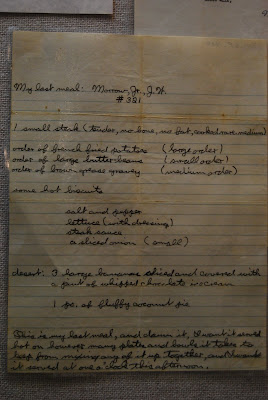 My last meal: Morrow, Jr., J.H.
# 381
1 small steak (tender, no bone, no fat, cooked rare-medium)
order of french fried potatoes (large order)
order of large butter beans (small order)
order of brown grease gravey (medium order)
some hot biscuits
salt and pepper
lettuce (with dressing)
steak sauce
a sliced onion (small)
desert: 3 large bananas sliced and covered with
a pint of whipped chocolate icecream
1 pc. of fluffy coconut pie
This is my last meal, and damn it, I want it served
hot on however many plates and bowls it takes to
keep from mixing any of it up together, and I want
it served at one o'clock this afternoon.